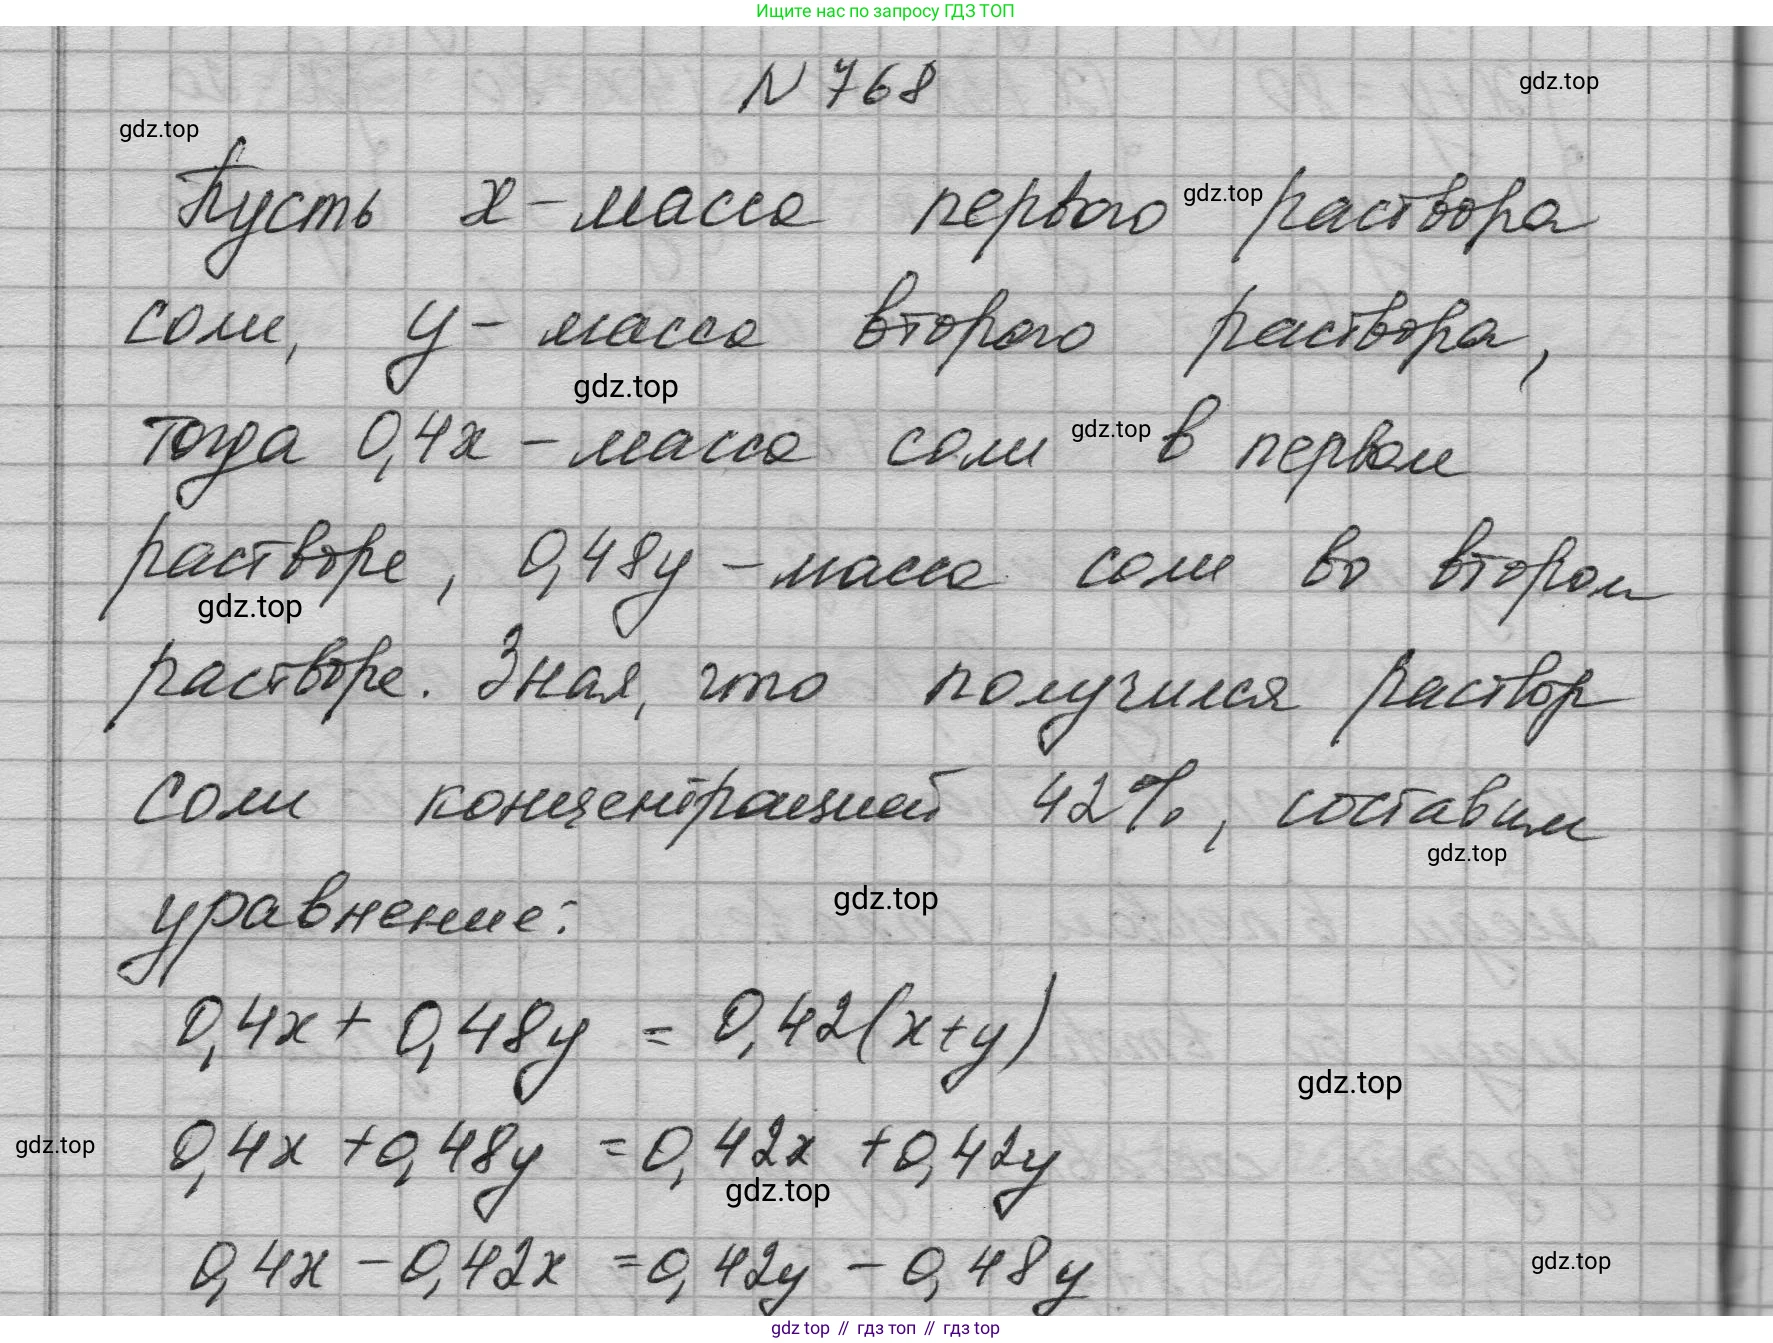 Ищите нас по запросу ГДЗ ТОП
N 768
gdz.top
gdz.top
Пусть x - масса первого gdz.top раствора
соли, y - масса второго раствора,
gdz.top
тогда 0,4x - масса соли gdz.top в первом
растворе, 0,48y - масса соли во втором
gdz.top
растворе. Зная, что получился раствор
соли концентрацией 42%, составим
gdz.top
уравнение:
gdz.top
0,4x + 0,48y = 0,42(x+y)
gdz.top
gdz.top
0,4x + 0,48y = 0,42x + 0,42y
gdz.top
0,4x - 0,42x = 0,42y - 0,48y
gdz.top
gdz top // гдз топ // гдз top